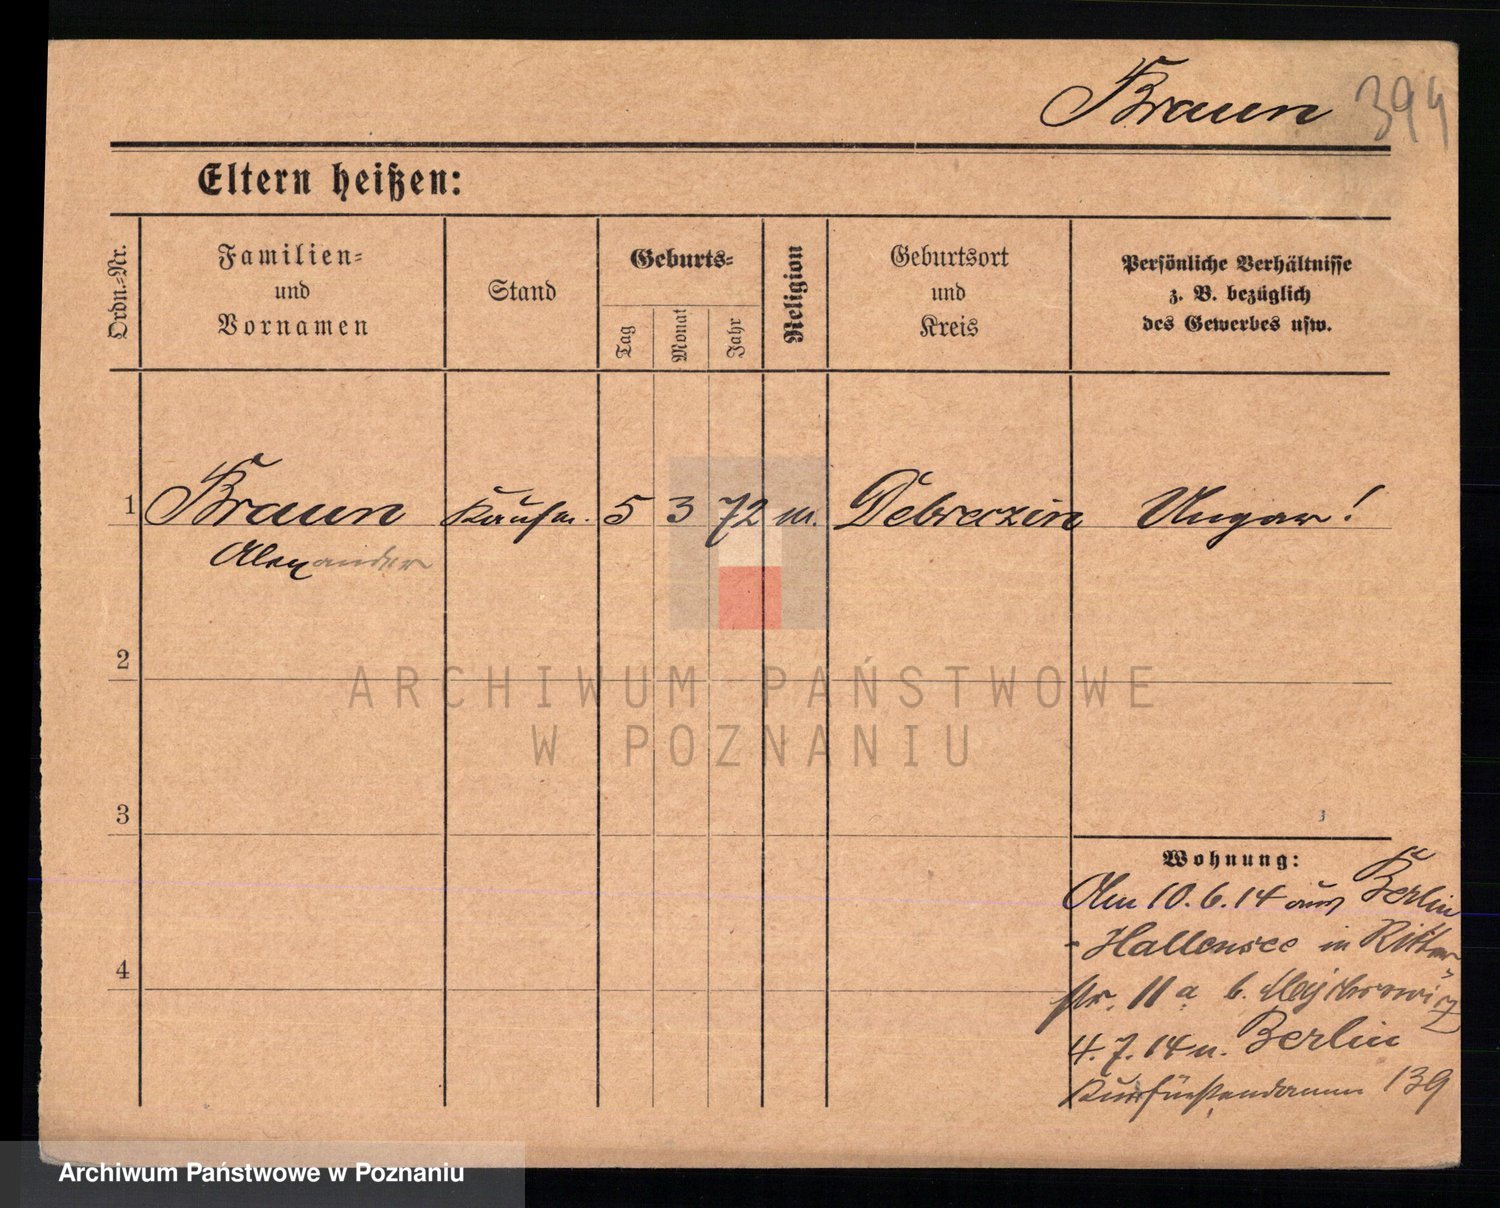 Braun 394
Eltern heißen:
Ordn.-Nr.
Familien-
und
Vornamen
Stand
Geburts-
Tag
Monat
Jahr
Religion
Geburtsort
und
Kreis
Persönliche Verhältnisse
z. B. bezüglich
des Gewerbes usw.
1 Braun Kaufm. 5 3 72 m. Debreczin Ungar!
Alexander
2
ARCHIWUM PAŃSTWOWE
W POZNANIU
3
Wohnung:
Am 10.6.14 aus Berlin
-Hallensee in Ritter
4
str. 11a b.
4.7.14 n. Berlin
Kurfürstendamm 139
Archiwum Państwowe w Poznaniu